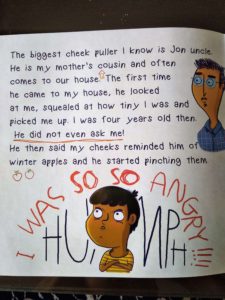 The biggest cheek puller I know is Jon uncle.
He is my mother's cousin and often
comes to our house. The first time
he came to my house, he looked
at me, squealed at how tiny I was and
picked me up. I was four years old then.
He did not even ask me!
He then said my cheeks reminded him of
winter apples and he started pinching them.
I WAS SO SO ANGRY
HUMPH!